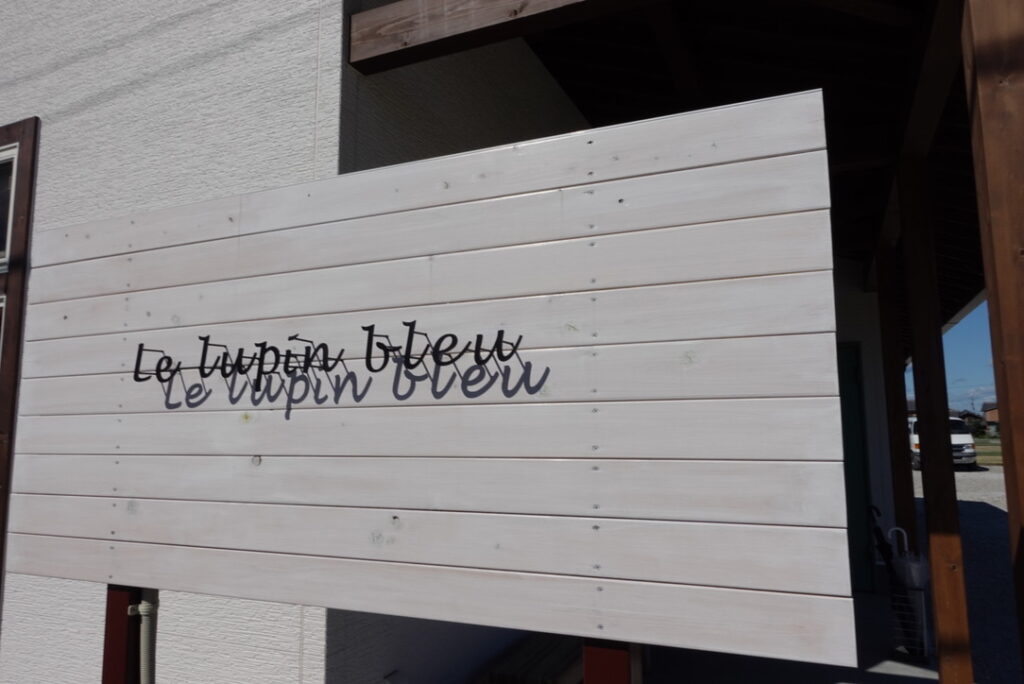 Le lupin bleu